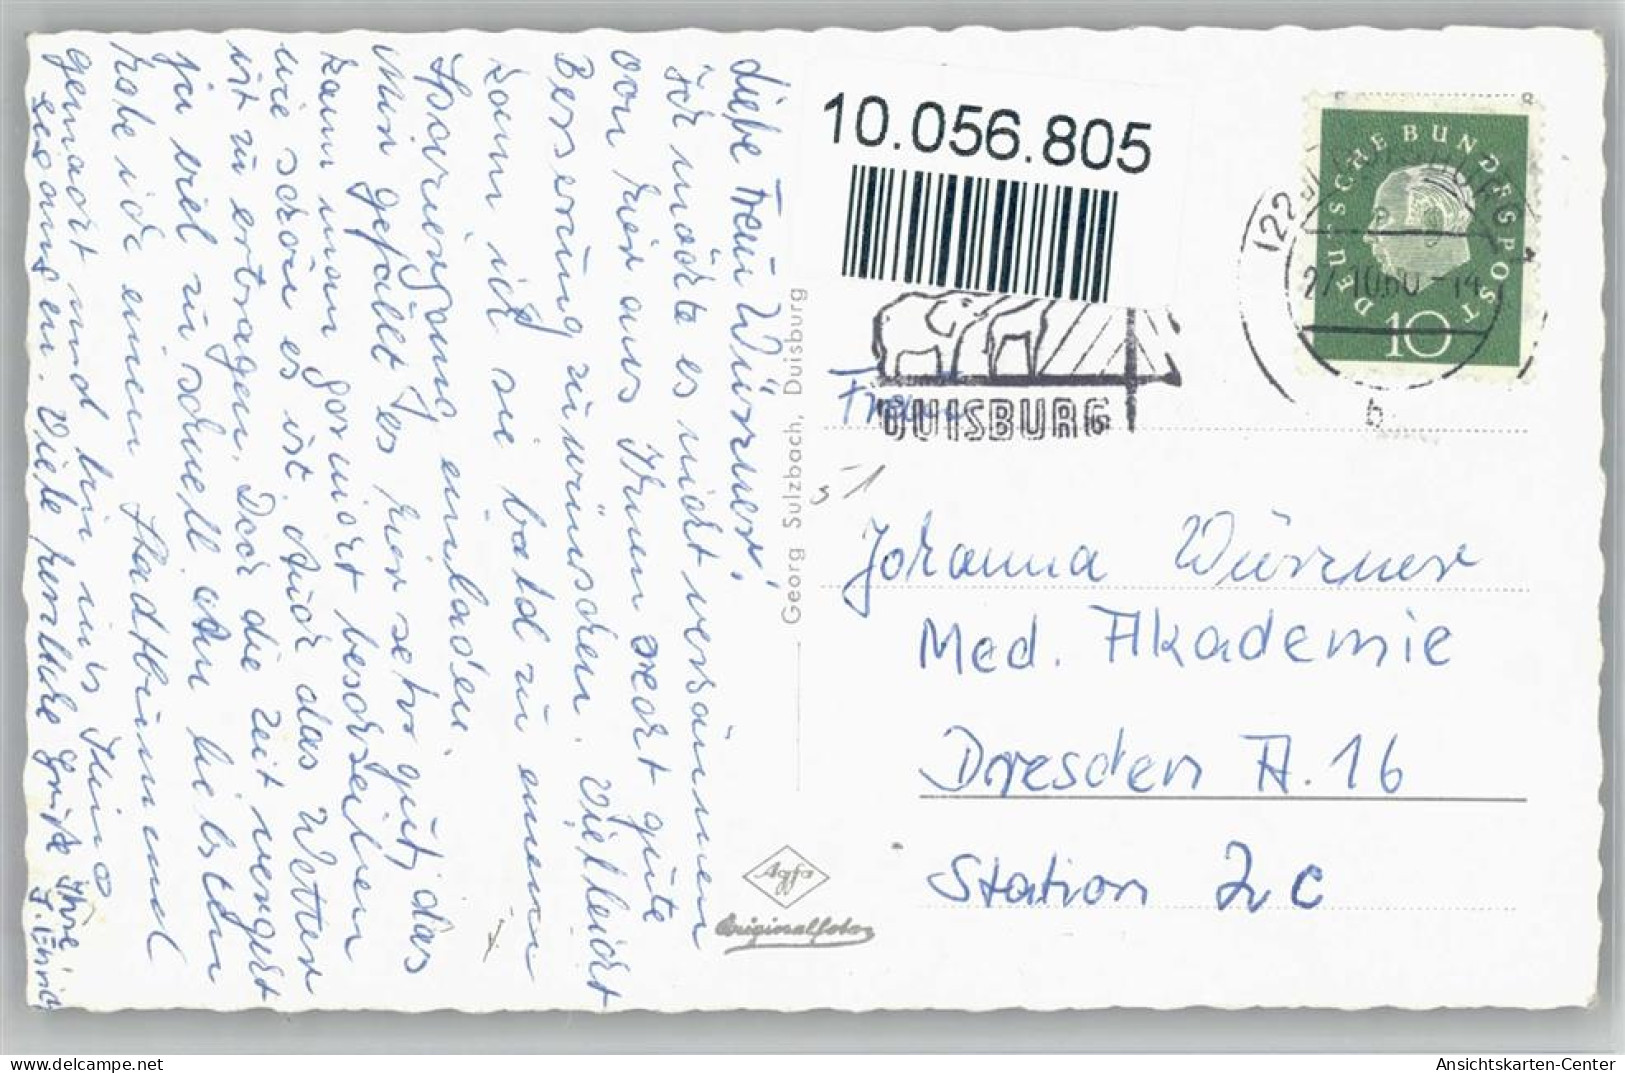 Liebe Frau Würzner!
Ich möchte es nicht versäumen
von hier aus Ihnen recht gute
Besserung zu wünschen. Vielleicht
kann ich sie bald zu einem
Spaziergang einladen.
Mir gefällt es hier sehr gut, das
kann man gar nicht beschreiben
wie schön es ist. Auch das Wetter
ist zu ertragen. Doch die Zeit vergeht
ja viel zu schnell. Am liebsten
habe ich einen Stadtbummel
gemacht und bin ins Kino
gegangen. Viele herzliche Grüße Ihre
Georg Sulzbach, Duisburg
Agfa
Originalfoto
10.056.805
DUISBURG
DEUTSCHE BUNDESPOST
10
27.10.60-14
b
Frau
Johanna Würzner
Med. Akademie
Dresden A. 16
Station 2c
delcampe.net
Ansichtskarten-Center